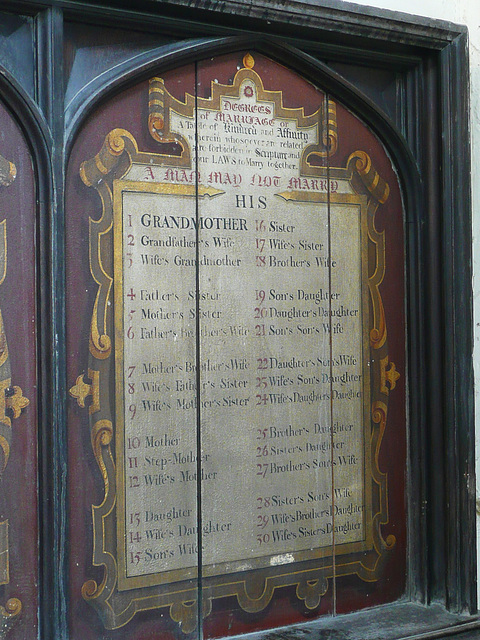 DEGREES
of MARRIAGE or
A Table of Kindred and Affinity
wherein whosoever are related
are forbidden in Scripture and
our LAWS to Marry together.
A MAN MAY NOT MARRY
HIS
1 GRANDMOTHER
2 Grandfather's Wife
3 Wife's Grandmother
4 Father's Sister
5 Mother's Sister
6 Father's Brother's Wife
7 Mother's Brother's Wife
8 Wife's Father's Sister
9 Wife's Mother's Sister
10 Mother
11 Step-Mother
12 Wife's Mother
13 Daughter
14 Wife's Daughter
15 Son's Wife
16 Sister
17 Wife's Sister
18 Brother's Wife
19 Son's Daughter
20 Daughter's Daughter
21 Son's Son's Wife
22 Daughter's Son's Wife
23 Wife's Son's Daughter
24 Wife's Daughter's Daughter
25 Brother's Daughter
26 Sister's Daughter
27 Brother's Son's Wife
28 Sister's Son's Wife
29 Wife's Brother's Daughter
30 Wife's Sister's Daughter